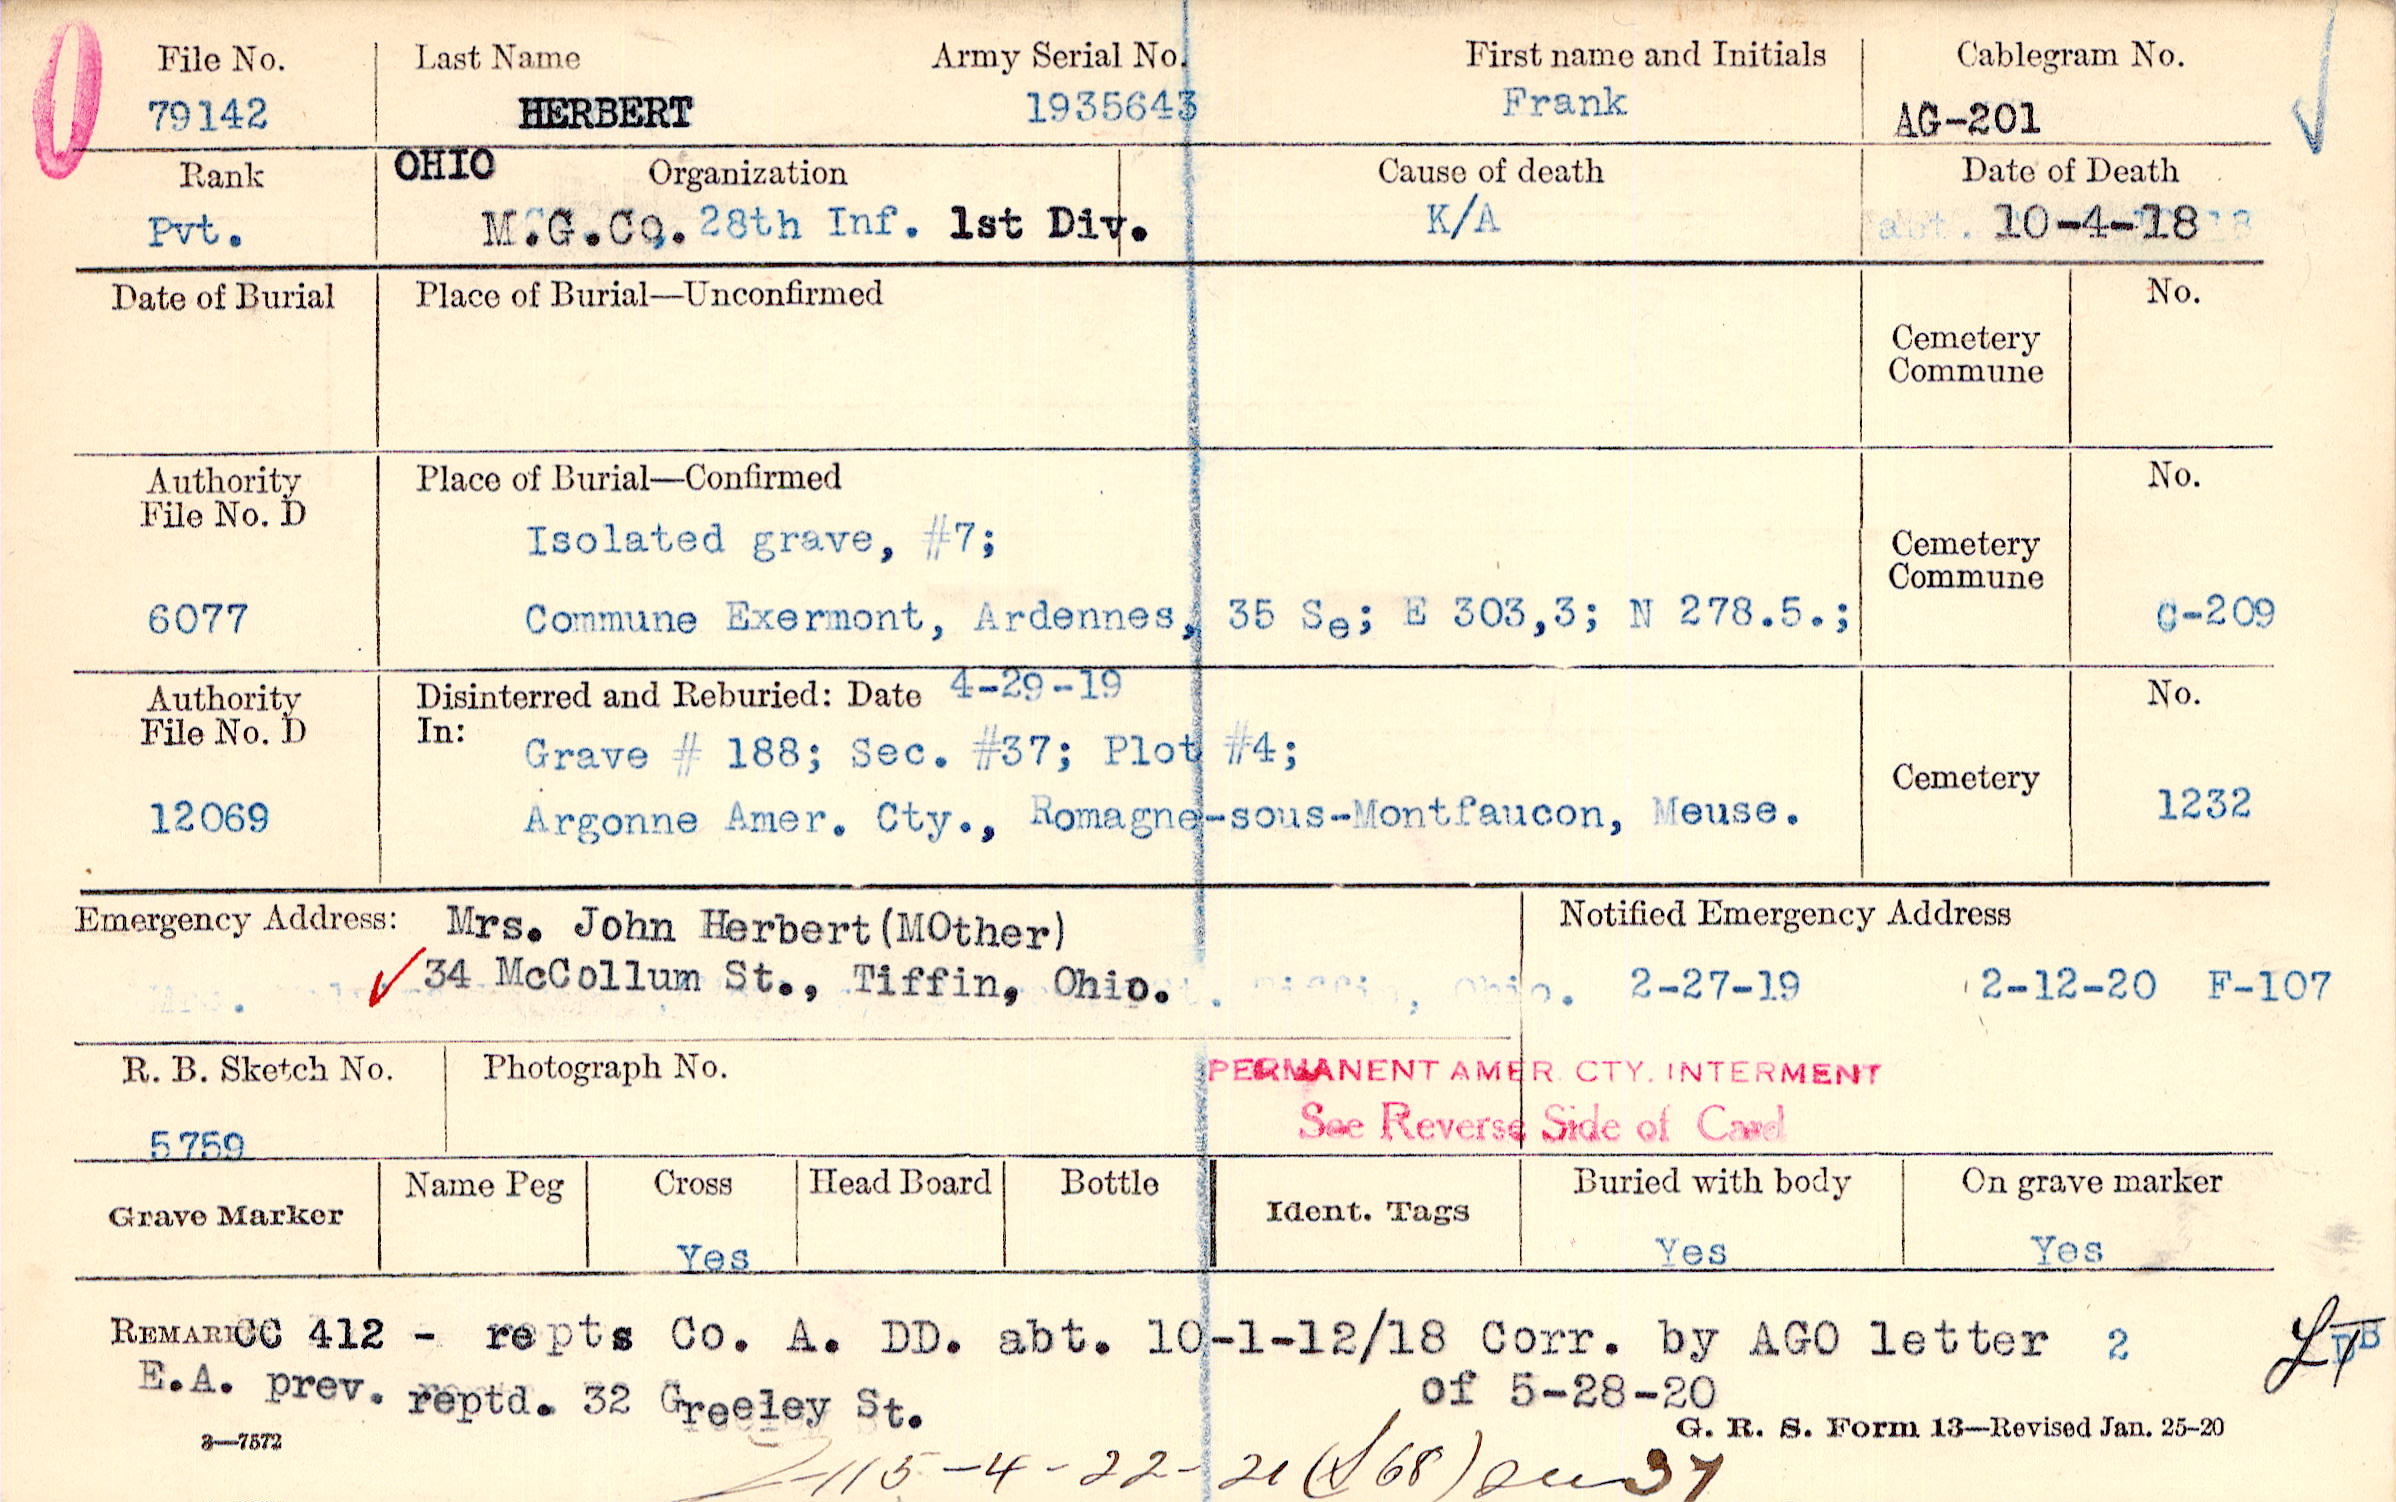 File No. Last Name Army Serial No. First name and Initials Cablegram No.
79142 HERBERT 1935643 Frank AG-201
Rank OHIO Organization Cause of death Date of Death
Pvt. M.G.Co. 28th Inf. 1st Div. K/A abt. 10-4-18
Date of Burial Place of Burial—Unconfirmed No.
Cemetery
Commune
Authority Place of Burial—Confirmed No.
File No. D
Isolated grave, #7;
Cemetery
Commune
6077 Commune Exermont, Ardennes, 35 Se; E 303,3; N 278.5.; C-209
Authority Disinterred and Reburied: Date 4-29-19 No.
File No. D In:
Grave # 188; Sec. #37; Plot #4;
Cemetery
12069 Argonne Amer. Cty., Romagne-sous-Montfaucon, Meuse. 1232
Emergency Address: Mrs. John Herbert(MOther) Notified Emergency Address
34 McCollum St., Tiffin, Ohio. Tiffin, Ohio. 2-27-19 2-12-20 F-107
R. B. Sketch No. Photograph No. PERMANENT AMER. CTY. INTERMENT
See Reverse Side of Card
5759
Grave Marker Name Peg Cross Head Board Bottle Ident. Tags Buried with body On grave marker
Yes Yes Yes
REMARK CC 412 - repts Co. A. DD. abt. 10-1-12/18 Corr. by AGO letter 2
E.A. prev. reptd. 32 Greeley St. of 5-28-20
3—7572 G. R. S. Form 13—Revised Jan. 25-20
115-4-22-21 ( 68) 37